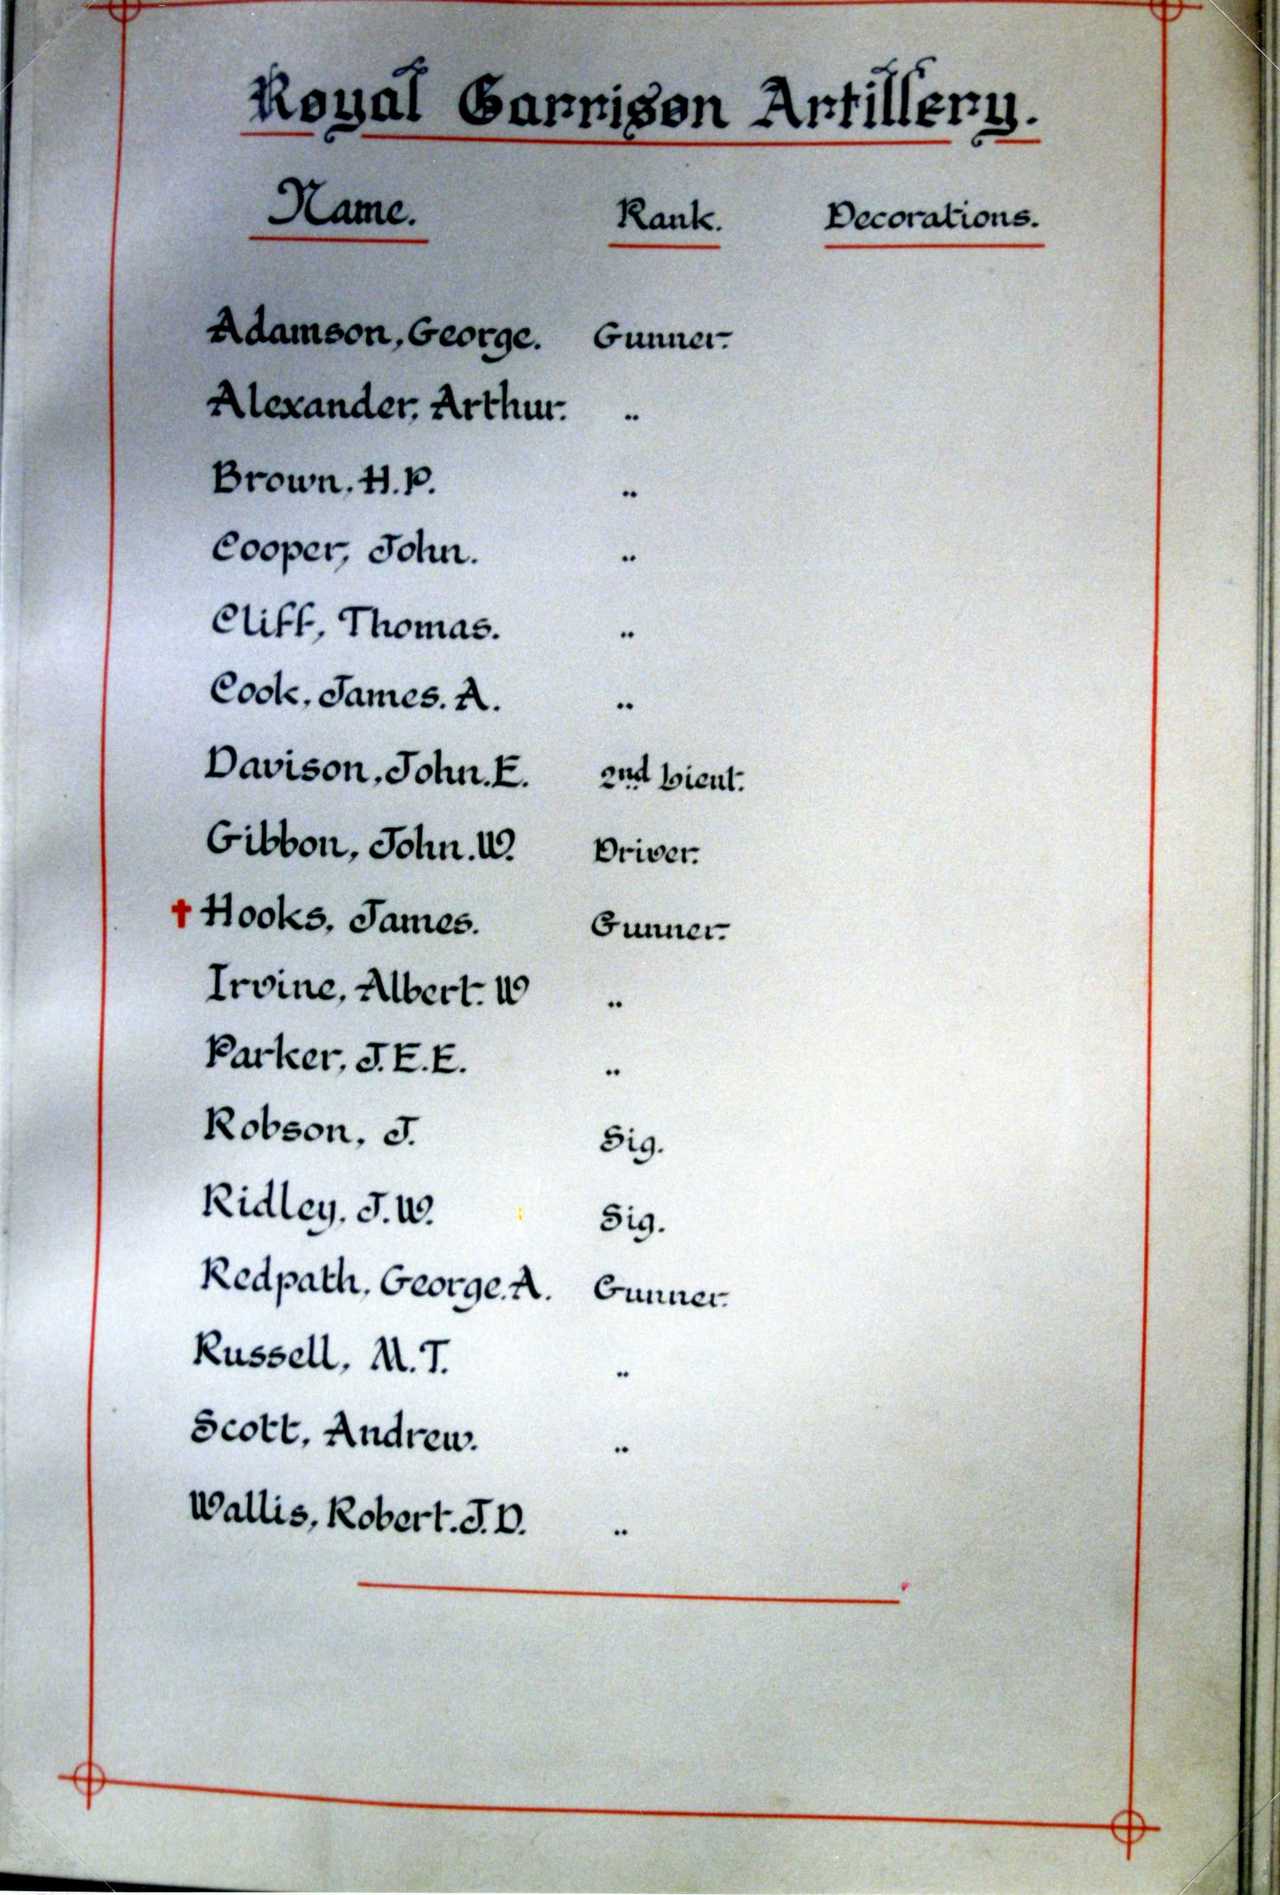 Royal Garrison Artillery.
Name. Rank. Decorations.
Adamson, George. Gunner.
Alexander, Arthur. "
Brown, H.P. "
Cooper, John. "
Cliff, Thomas. "
Cook, James. A. "
Davison, John. E. 2nd Lieut.
Gibbon, John. W. Driver.
✝ Hooks, James. Gunner.
Irvine, Albert. W "
Parker, J.E.E. "
Robson, J. Sig.
Ridley, J.W. Sig.
Redpath, George. A. Gunner.
Russell, M.T. "
Scott, Andrew. "
Wallis, Robert. J.D. "